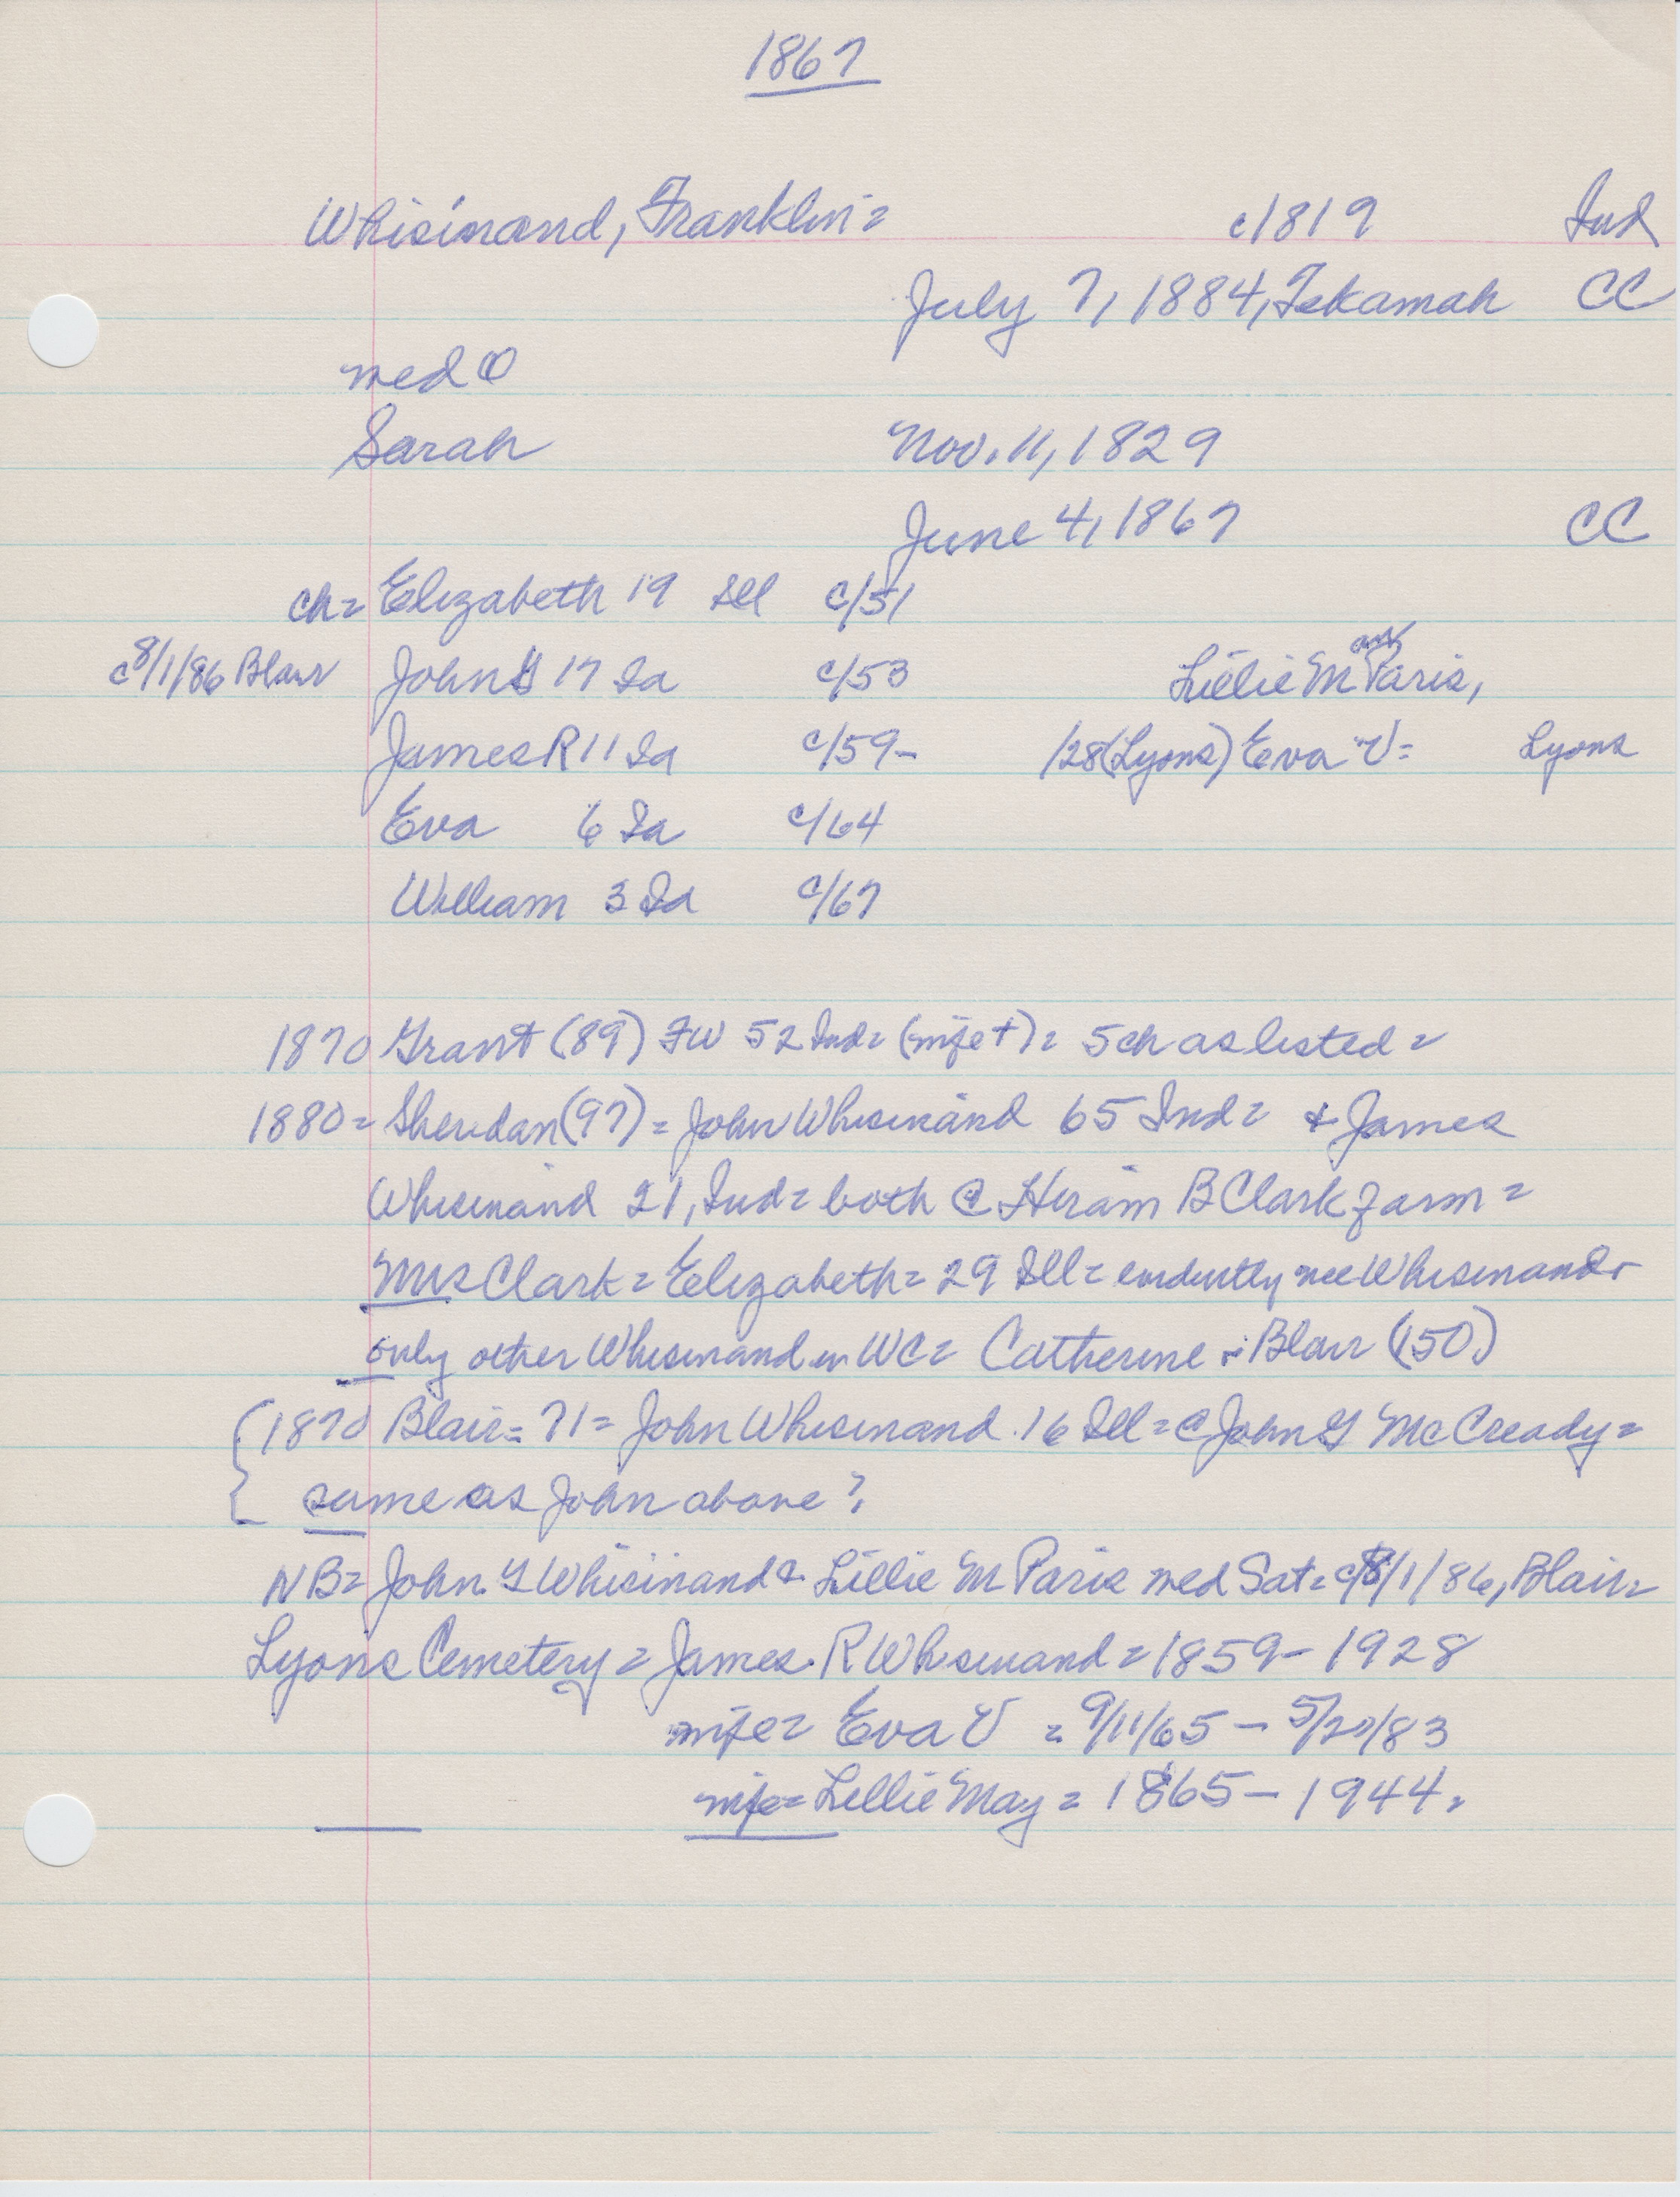 1867
Whisinand, Franklin = c/1819 Ind
July 7, 1884, Tekamah CC
med @
Sarah Nov. 11, 1829
June 4, 1867 CC
ch = Elizabeth 19 Ill c/51
c8/1/86 Blair John G 17 Ia c/53 Lillie M Paris,
James R 11 Ia c/59- /28 (Lyons) Eva V = Lyons
Eva 6 Ia c/64
William 3 Ia c/67
1870 Grant (89) FW 52 Ind = (wife +) = 5 ch as listed =
1880 = Sheridan (97) = John Whisinand 65 Ind = + James
Whisinand 21, Ind = both @ Hiram B Clark farm =
Mrs Clark = Elizabeth = 29 Ill = evidently nee Whisinand -
only other Whisinand in WC = Catherine - Blair (150)
(1870 Blair = 71 = John Whisinand 16 Ill = @ John G McCready =
same as John above?
NB = John G Whisinand & Lillie M Paris med Sat = c8/1/86, Blair =
Lyons Cemetery = James R Whisinand = 1859 - 1928
wife = Eva V = 9/11/65 - 5/20/83
wife = Lillie May = 1865 - 1944.